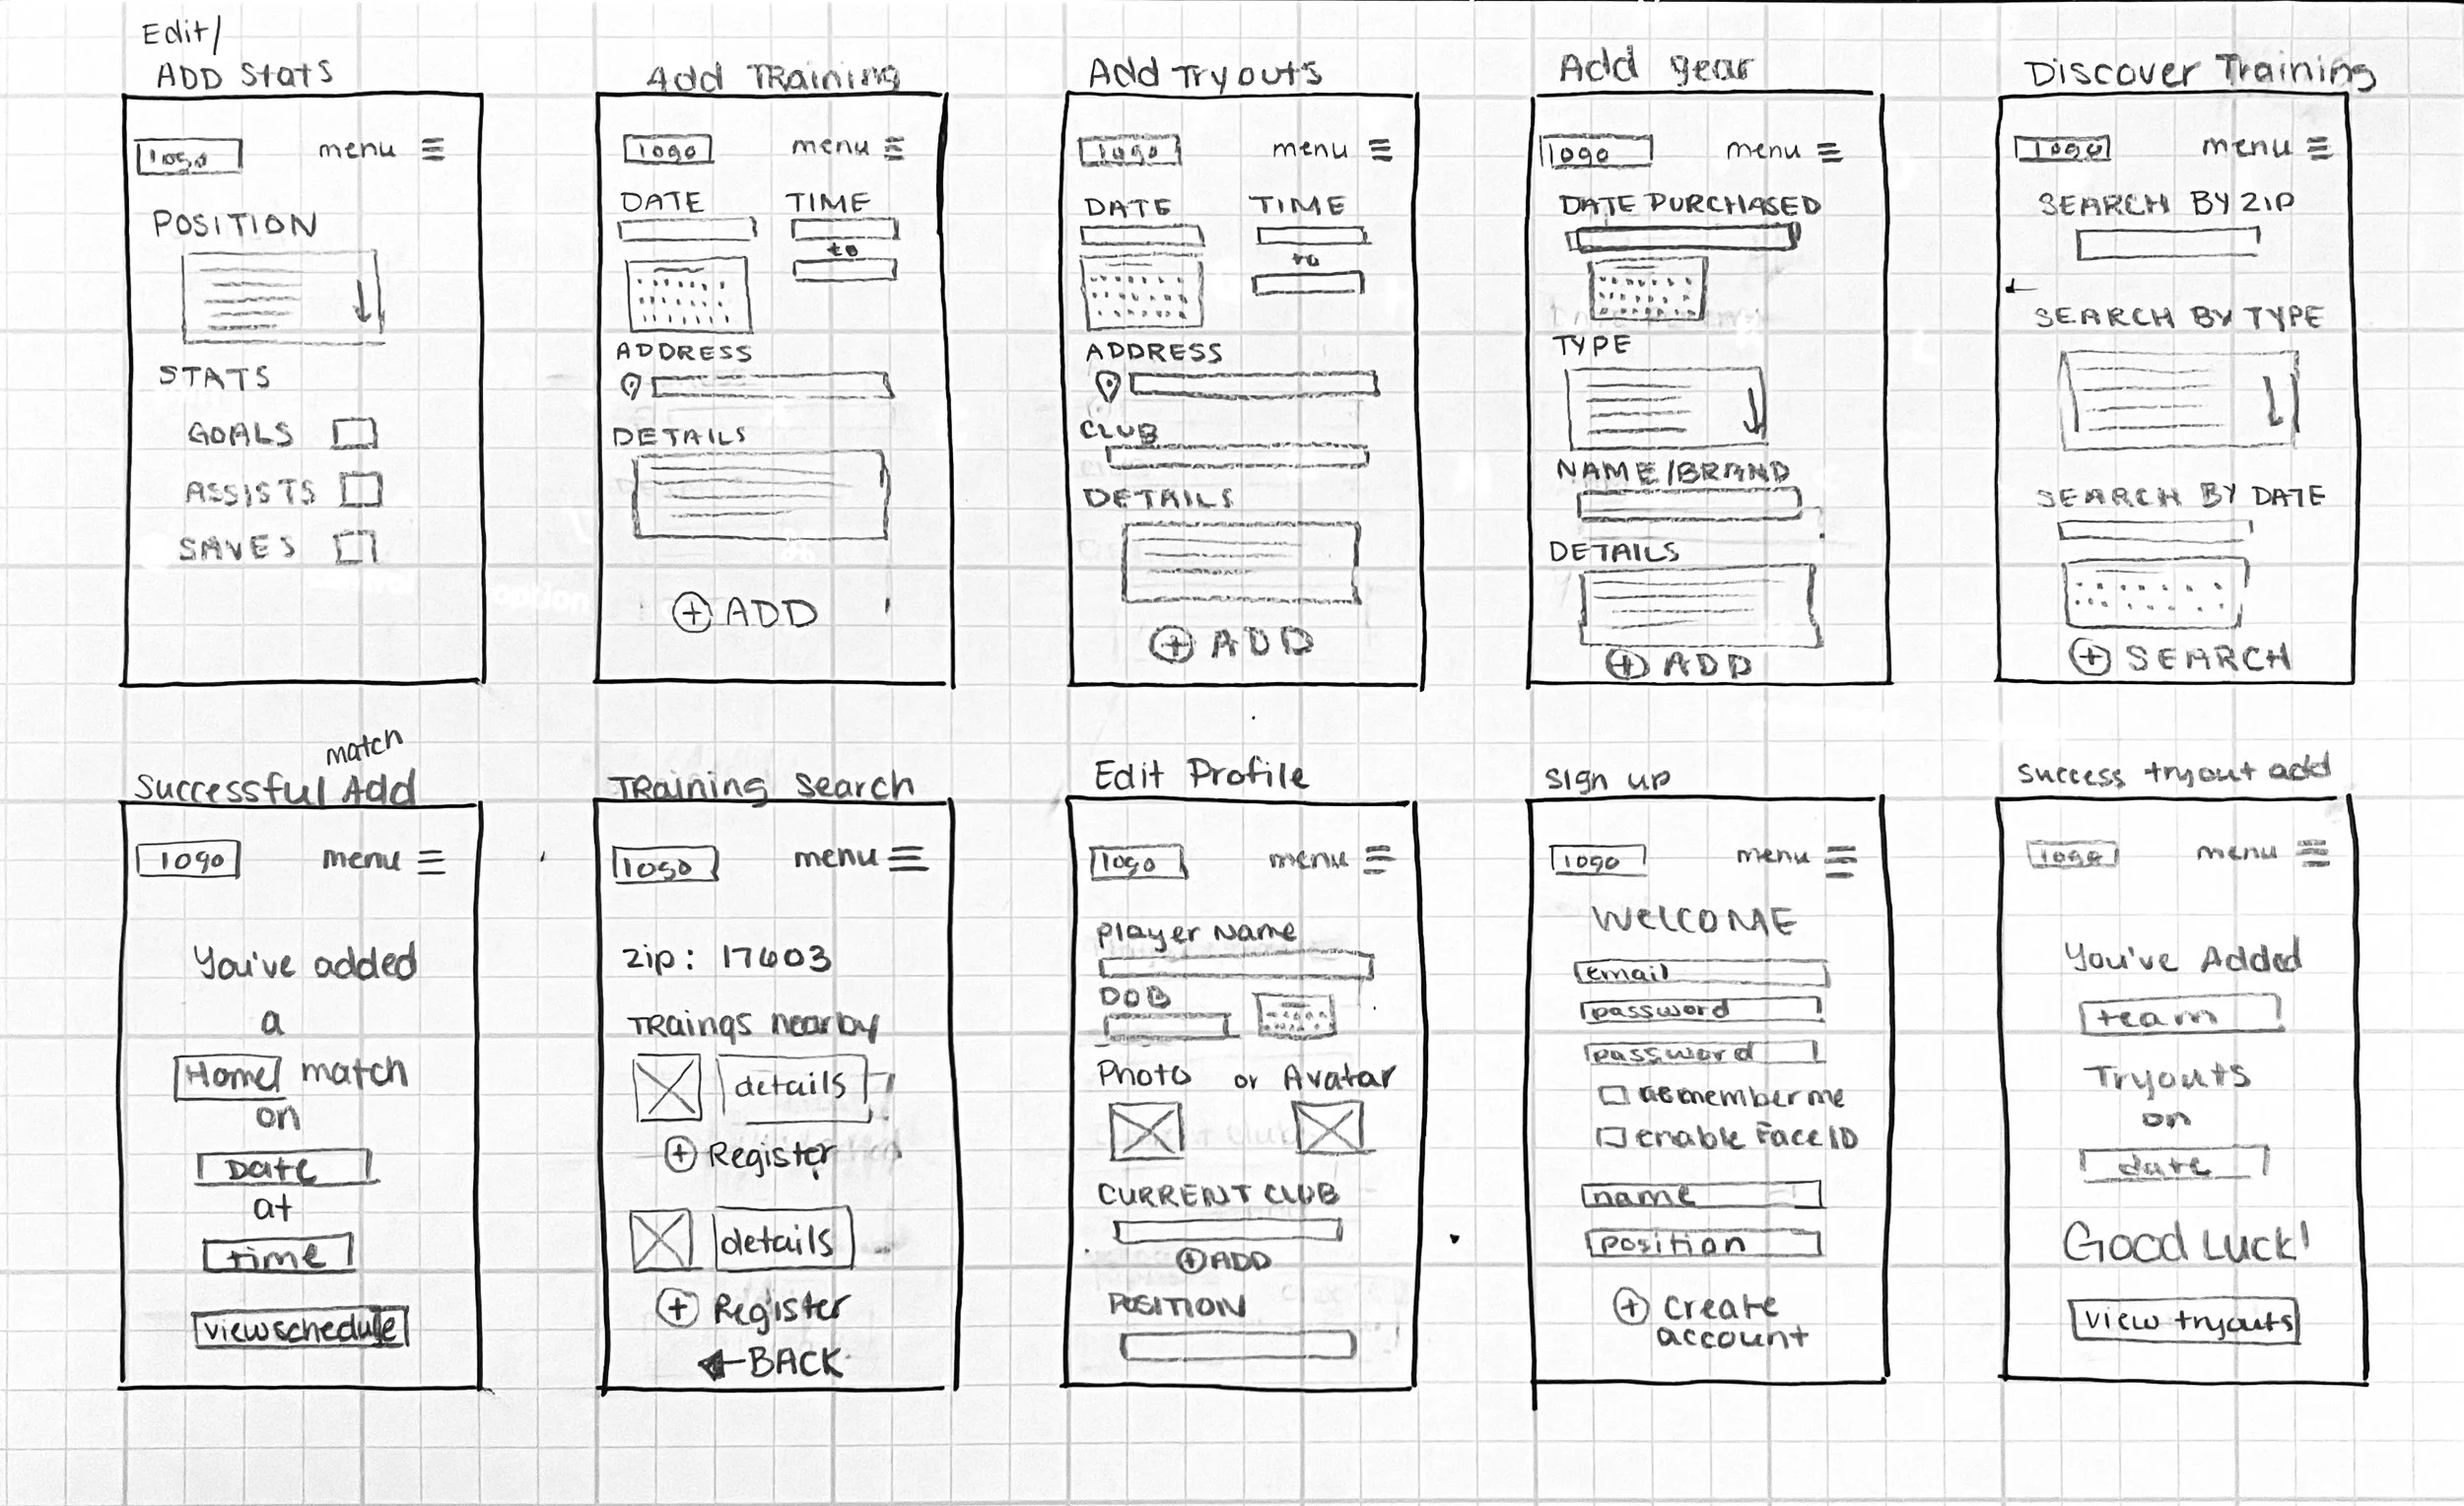 Edit/
ADD Stats
logo menu
POSITION
STATS
GOALS
ASSISTS
SAVES
Add TRaining
logo menu
DATE TIME
to
ADDRESS
DETAILS
+ ADD
Add Tryouts
logo menu
DATE TIME
to
ADDRESS
CLUB
DETAILS
+ ADD
Add gear
logo menu
DATE PURCHASED
TYPE
NAME/BRAND
DETAILS
+ ADD
Discover Training
logo menu
SEARCH BY ZIP
SEARCH BY TYPE
SEARCH BY DATE
+ SEARCH
match
Successful Add
logo menu
You've added
a
Home match
on
Date
at
time
view schedule
TRaining Search
logo menu
zip: 17603
TRaings nearby
details
+ Register
details
+ Register
BACK
Edit Profile
logo menu
player Name
DOB
Photo or Avatar
CURRENT CLUB
+ ADD
POSITION
Sign up
logo menu
WELCOME
email
password
password
Remember me
enable Face ID
name
position
+ create
account
Success tryout add
logo menu
You've Added
team
Tryouts
on
date
Good Luck!
view tryouts